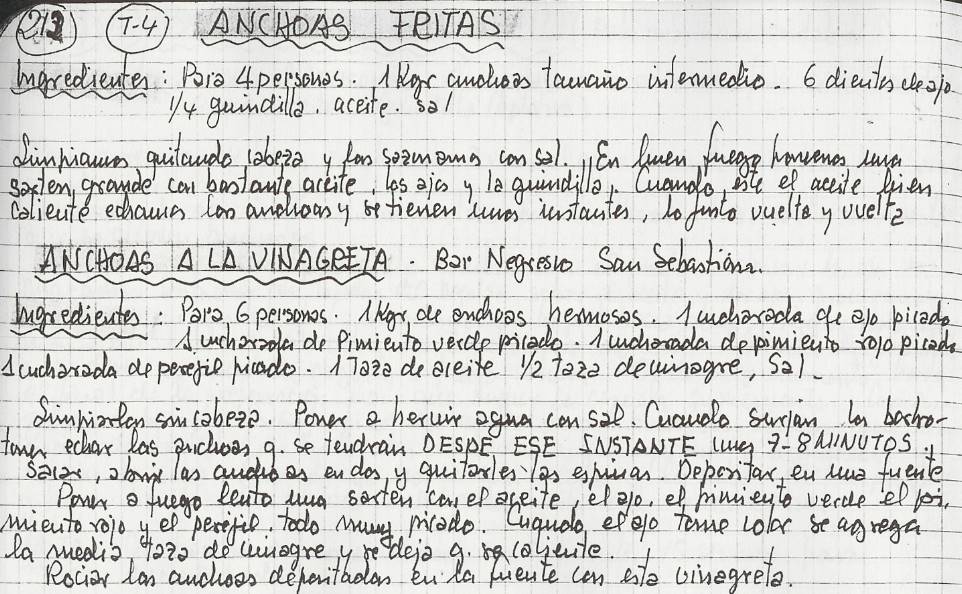 213 T-4 ANCHOAS FRITAS
Ingredientes: Para 4 personas. 1 Kgr anchoas tamaño intermedio. 6 dientes de ajo
1/4 guindilla. aceite. sal
Limpiamos quitando cabeza y las sazonamos con sal. En buen fuego ponemos una
sartén, grande con bastante aceite, los ajos y la guindilla. Cuando este el aceite bien
caliente echamos las anchoas y se tienen unos instantes, lo justo vuelta y vuelta
ANCHOAS A LA VINAGRETA. Bar Negresco San Sebastián.
Ingredientes: Para 6 personas. 1 Kgr de anchoas hermosas. 1 cucharada de ajo picado
1 cucharada de Pimiento verde picado. 1 cucharada de pimiento rojo picado
1 cucharada de perejil picado. 1 Taza de aceite 1/2 taza de vinagre, Sal.
Limpiarlas sin cabeza. Poner a hervir agua con sal. Cuando surjan los borbo-
tones echar las anchoas q. se tendrán DESDE ESE INSTANTE unos 7-8 MINUTOS.
Sacar, abrir las anchoas en dos y quitarles las espinas. Depositar en una fuente
Poner a fuego lento una sartén con el aceite, el ajo, el pimiento verde el pi-
miento rojo y el perejil, todo muy picado. Cuando el ajo tome color se agrega
la media taza de vinagre y se deja q. se caliente.
Rociar las anchoas depositadas en la fuente con esta vinagreta.